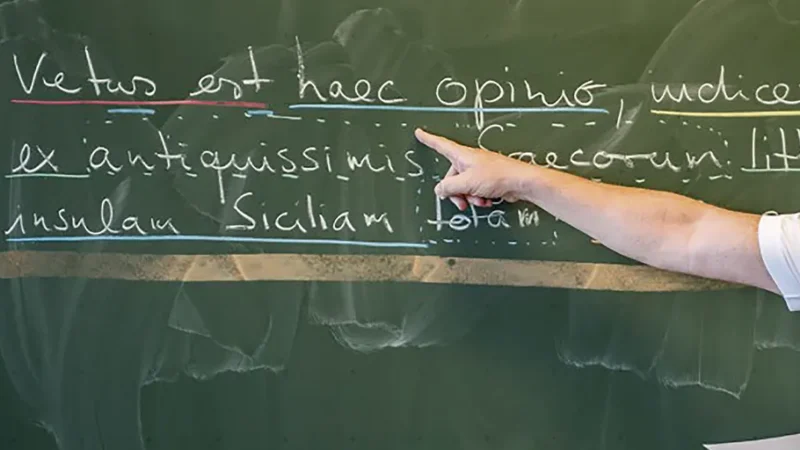 Vetus est haec opinio, indice
ex antiquissimis Graecorum litt
insulam Siciliam totam